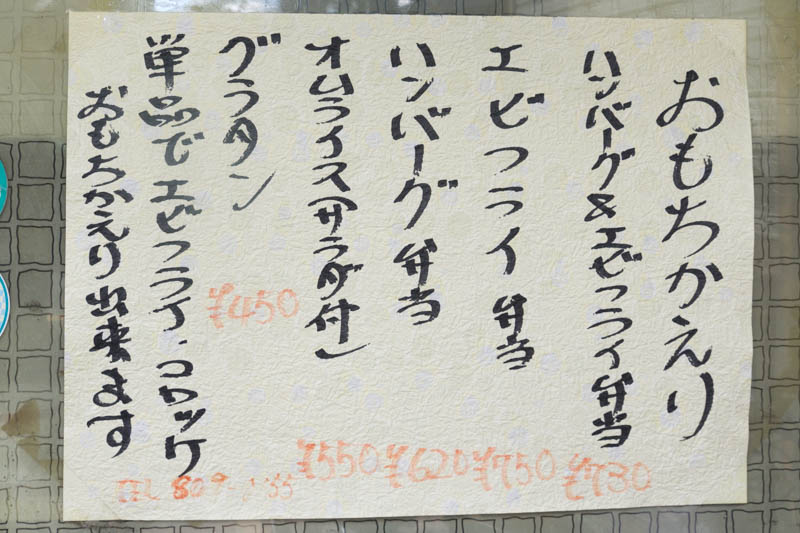 おもちかえり
ハンバーグ&エビフライ弁当 ¥730
エビフライ弁当 ¥750
ハンバーグ弁当 ¥620
オムライス(サラダ付) ¥550
グラタン ¥450
単品でエビフライ・コロッケ
おもちかえり出来ます
TEL